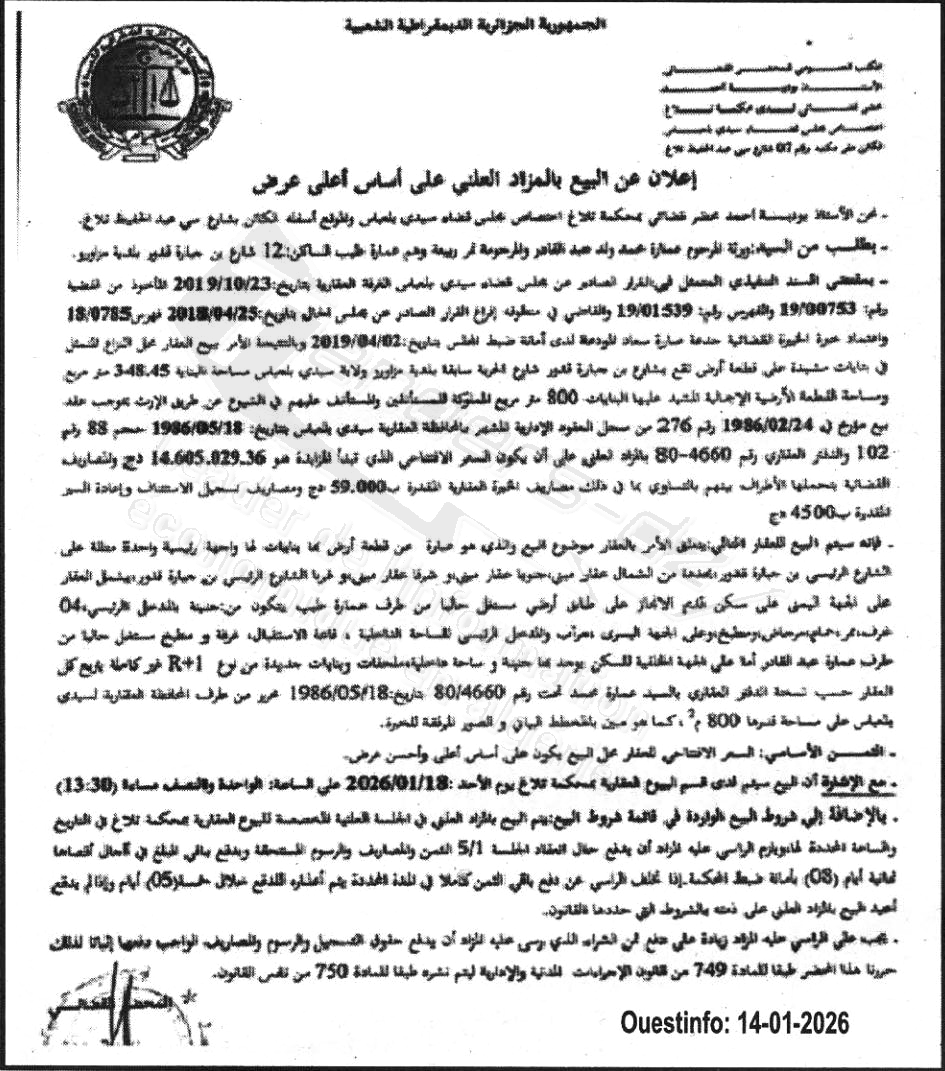 الجمهورية الجزائرية الديمقراطية الشعبية
المكتب العمومي للمحضر القضائي
الأستاذ بوديسة أحمد
محضر قضائي لدى محكمة تلاغ
اختصاص مجلس قضاء سيدي بلعباس
الكائن مقر مكتبه رقم 07 شارع سي عبد الحفيظ تلاغ
إعلان عن البيع بالمزاد العلني على أساس أعلى عرض
ـ نحن الأستاذ بوديسة أحمد محضر قضائي بمحكمة تلاغ اختصاص مجلس قضاء سيدي بلعباس والموقع أسفله الكائن بشارع سي عبد الحفيظ تلاغ.
ـ بطلب من السيد: ورثة المرحوم عمارة محمد ولد عبد القادر والمرحومة ثمر ربيعة وهم عمارة طيب الساكن: 12 شارع بن جبارة قدور بلدية مزاورو.
ـ بمقتضى السند التنفيذي المتمثل في: القرار الصادر عن مجلس قضاء سيدي بلعباس الغرفة العقارية بتاريخ: 2019/10/23 المأخوذ من القضية
رقم: 19/00753 والفهرس رقم: 19/01539 والقاضي في منطوقه إفراغ القرار الصادر عن مجلس الحال بتاريخ: 2018/04/25 فهرس 18/0785
واعتماد خبرة الخبيرة القضائية حدعة صارة سعاد المودعة لدى أمانة ضبط المجلس بتاريخ: 2019/04/02 وبالنتيجة الأمر ببيع العقار محل النزاع المتمثل
في بنايات مشيدة على قطعة أرض تقع بشارع بن جبارة قدور شارع الحرية سابقا بلدية مزاورو ولاية سيدي بلعباس مساحة البناية 348.45 متر مربع
ومساحة القطعة الأرضية الإجمالية المشيد عليها البنايات 800 متر مربع المملوكة للمستأنفين والمستأنف عليهم في الشيوع عن طريق الإرث بموجب عقد
بيع مؤرخ في 1986/02/24 رقم 276 من سجل العقود الإدارية المشهر بالمحافظة العقارية سيدي بلعباس بتاريخ: 1986/05/18 حجم 88 رقم
102 والدفتر العقاري رقم 4660-80 بالمزاد العلني على أن يكون السعر الافتتاحي الذي تبدأ المزايدة هو 14.605.029.36 دج والمصاريف
القضائية يتحملها الأطراف بينهم بالتساوي بما في ذلك مصاريف الخبرة العقارية المقدرة ب59.000 دج ومصاريف تسجيل الاستئناف وإعادة السير
المقدرة ب4500 دج
ـ فإنه سيتم البيع للعقار التالي: يتعلق الأمر بالعقار موضوع البيع والذي هو عبارة عن قطعة أرض بها بنايات لها واجهة رئيسية واحدة مطلة على
الشارع الرئيسي بن جبارة قدور، محددة من الشمال عقار مبني، جنوبا عقار مبني، و شرقا عقار مبني، و غربا الشارع الرئيسي بن جبارة قدور، يشمل العقار
على الجهة اليمنى على سكن قديم الانجاز على طابق أرضي مستغل حاليا من طرف عمارة طيب يتكون من: حديقة بالمدخل الرئيسي، 04
غرف، ممر، حمام، مرحاض، ومطبخ، وعلى الجهة اليسرى، مرآب والمدخل الرئيسي للساحة الداخلية ، قاعة الاستقبال، غرفة و مطبخ مستغل حاليا من
طرف عمارة عبد القادر أما على الجهة الخلفية للسكن يوجد بها حديقة و ساحة داخلية، ملحقات وبنايات جديدة من نوع R+1 غير كاملة يتربع كل
العقار حسب نسخة الدفتر العقاري بالسيد عمارة محمد تحت رقم 80/4660 بتاريخ: 1986/05/18 محرر من طرف المحافظة العقارية لسيدي
بلعباس على مساحة قدرها 800 م²، كما هو مبين بالمخطط البياني و الصور المرفقة للخبرة.
ـ الثمن الأساسي: السعر الافتتاحي للعقار محل البيع يكون على أساس أعلى وأحسن عرض.
ـ مع الإشارة أن البيع سيتم لدى قسم البيوع العقارية بمحكمة تلاغ يوم الأحد :2026/01/18 على الساعة: الواحدة والنصف مساءا (13:30)
ـ بالإضافة إلى شروط البيع الواردة في قائمة شروط البيع: يتم البيع بالمزاد العلني في الجلسة العلنية المخصصة للبيوع العقارية بمحكمة تلاغ في التاريخ
والساعة المحددة لها، ويلزم الراسي عليه المزاد أن يدفع حال انعقاد الجلسة 5/1 الثمن والمصاريف والرسوم المستحقة ويدفع باقي المبلغ في آجال أقصاها
ثمانية أيام (08) بأمانة ضبط المحكمة، إذا تخلف الراسي عن دفع باقي الثمن كاملا في المدة المحددة يتم أعذاره للدفع خلال خمسة (05) أيام وإذا لم يدفع
أعيد البيع بالمزاد العلني على ذمته بالشروط التي حددها القانون.
ـ يجب على الراسي عليه المزاد زيادة على دفع ثمن الشراء الذي رسى عليه المزاد أن يدفع حقوق التسجيل والرسوم والمصاريف الواجب دفعها إثباتا لذلك
حررنا هذا المحضر طبقا للمادة 749 من قانون الإجراءات المدنية والإدارية ليتم نشره طبقا للمادة 750 من نفس القانون.
المحضر القضائي
Ouestinfo: 14-01-2026